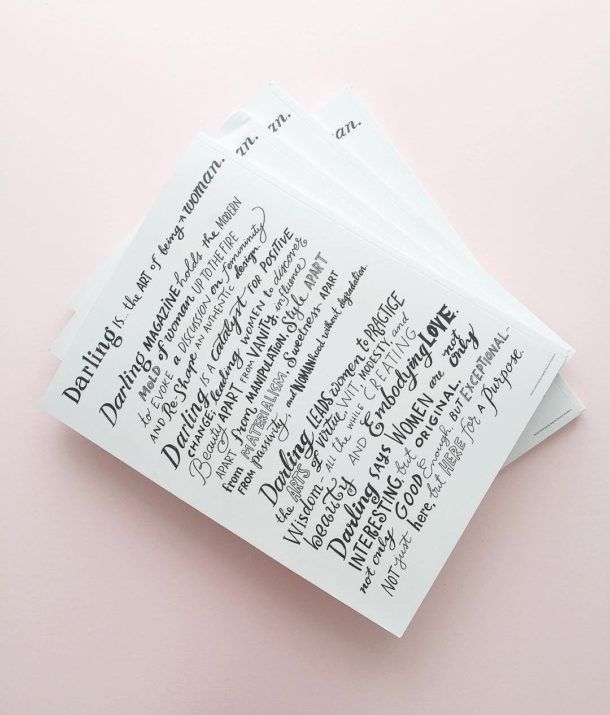 Darling is the ART of being a woman.
Darling MAGAZINE holds the MODERN
MOLD of woman UP TO THE FIRE
to EVOKE a DISCUSSION on femininity
AND Re-Shape AN AUTHENTIC design.
Darling IS A Catalyst FOR POSITIVE
CHANGE, leading WOMEN to discover
Beauty APART from VANITY, influence
APART from MANIPULATION, Style APART
from MATERIALISM, Sweetness APART
FROM passivity, and WOMANhood without degradation.
Darling LEADS women to PRACTICE
the ARTS of virtue, WIT, MODESTY, and
Wisdom ALL the WHILE CREATING
beauty AND Embodying LOVE.
Darling SAYS WOMEN are not only
INTERESTING, but ORIGINAL,
not only GOOD Enough, but EXCEPTIONAL-
NOT just here, but HERE for a Purpose.
an.
an.
an.